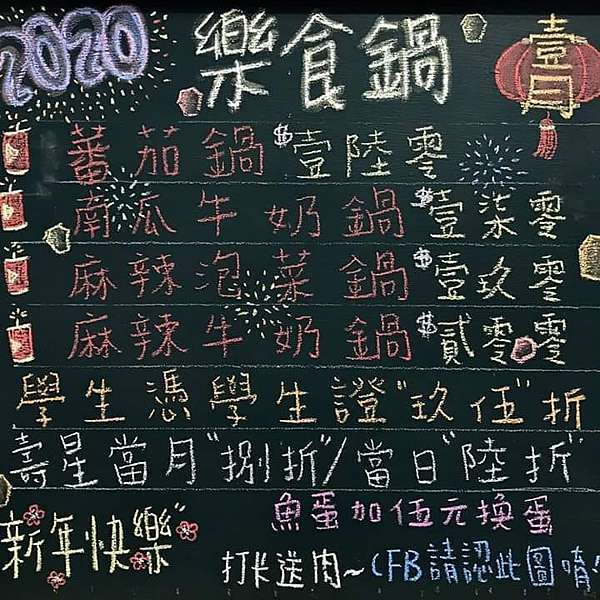 2020 樂食鍋 壹月
蕃茄鍋 $壹陸零
南瓜牛奶鍋 $壹柒零
麻辣泡菜鍋 $壹玖零
麻辣牛奶鍋 $貳零零
學生憑學生證"玖伍"折
壽星當月"捌折"/當日"陸折"
魚蛋加伍元換蛋
新年快樂
打卡送肉~(FB請認此圖唷!